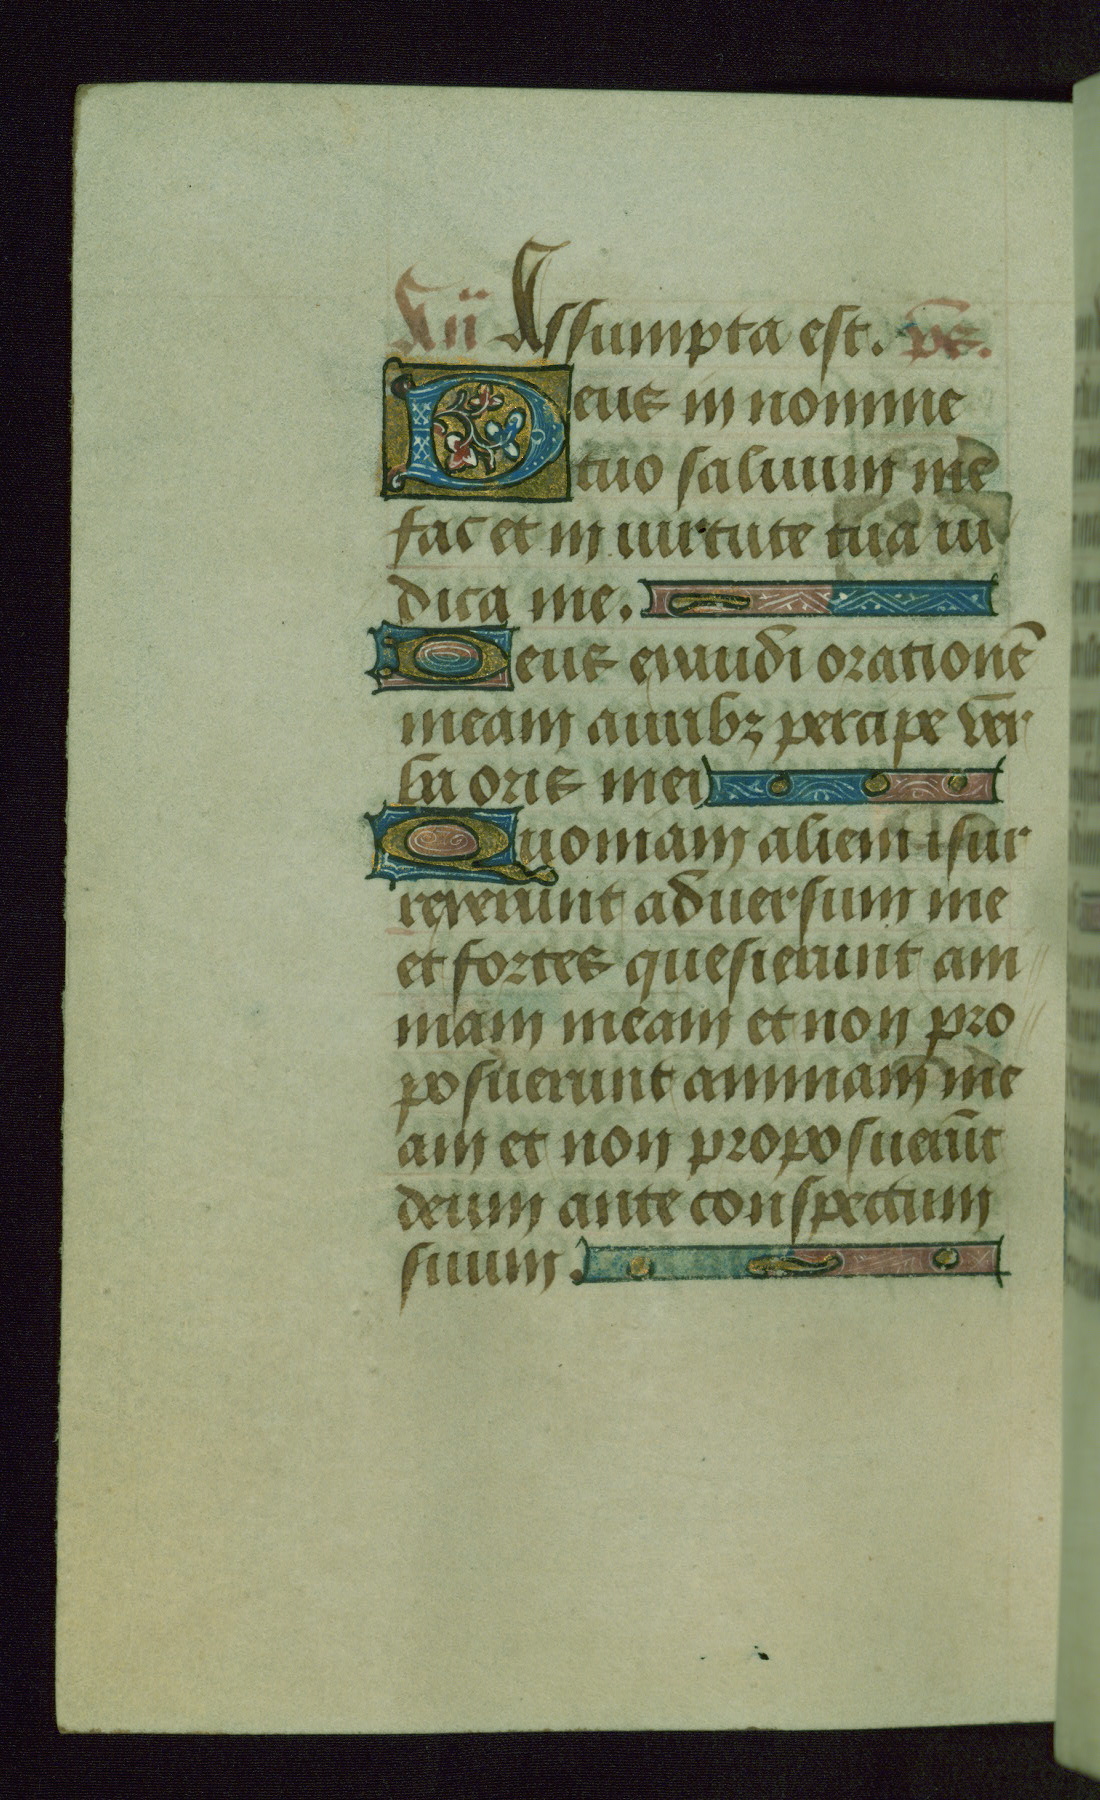 An̄ Assumpta est. ps̄.
Deus in nomine
tuo saluum me
fac et in uirtute tua iu
dica me.
Deus exaudi orationē
meam auribꝫ percipe ver
ba oris mei
Quoniam alieni isur
rexerunt aduersum me
et fortes quesierunt ani
mam meam et non pro
posuerunt animam me
am et non proposuer̄ut
deum ante conspectum
suum.